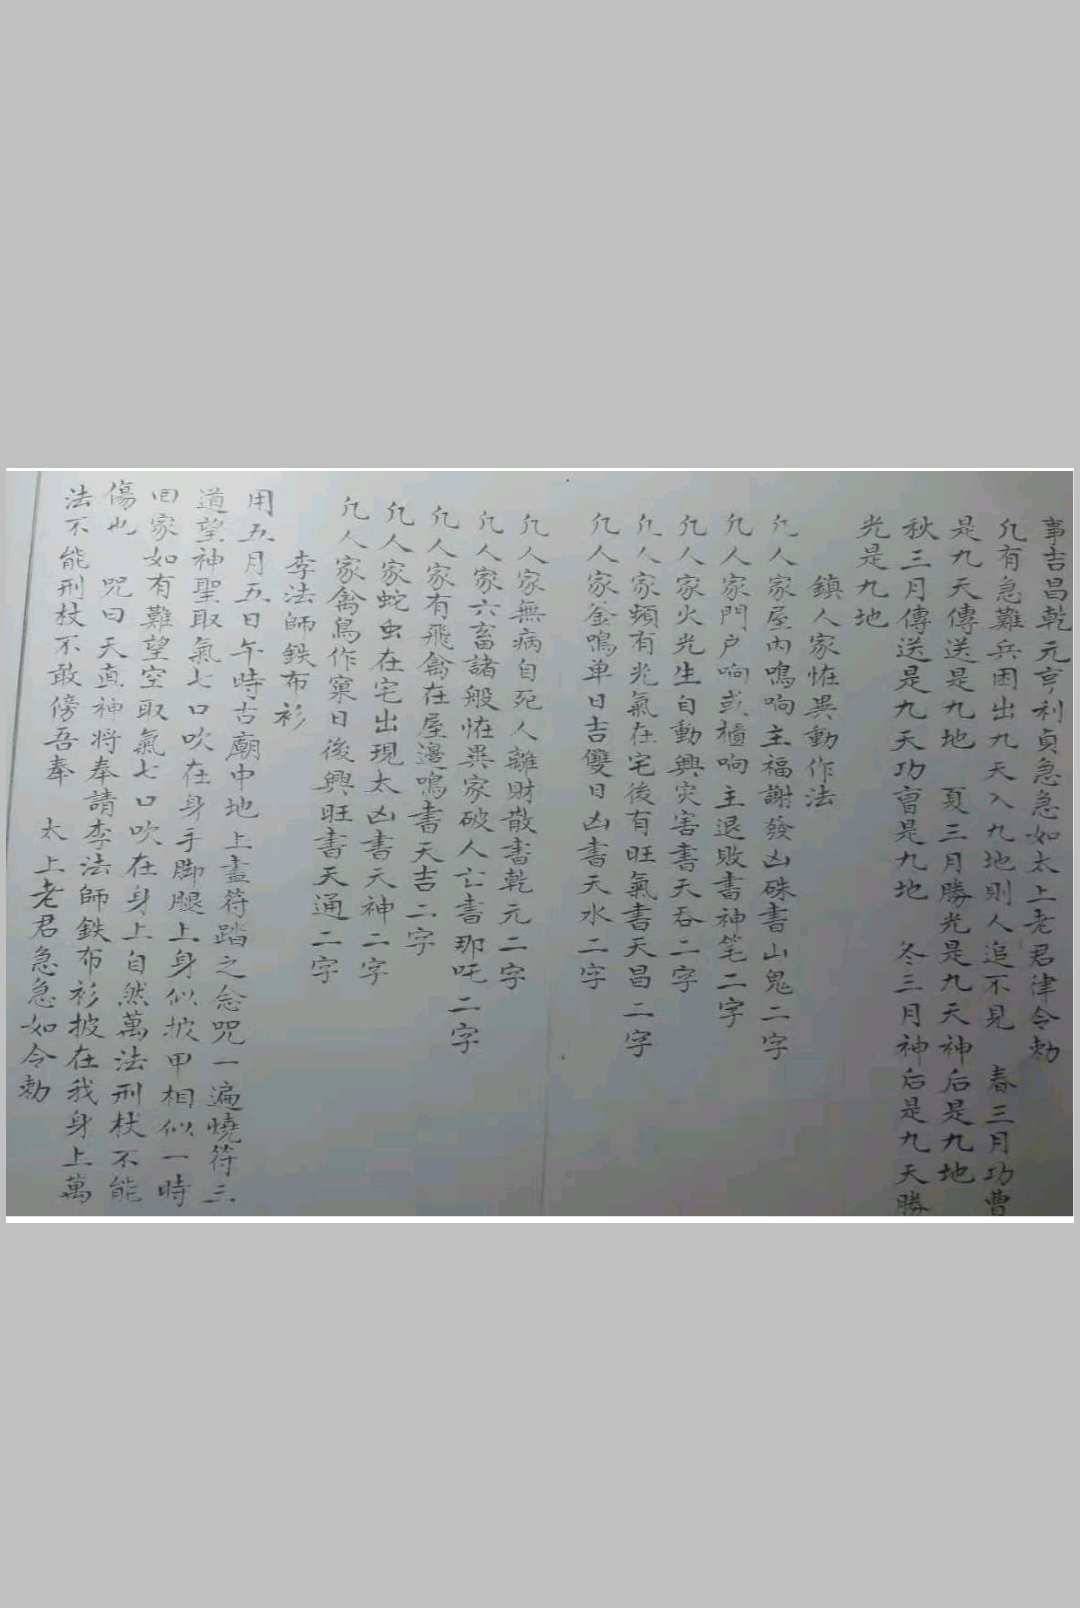 事吉昌乾元亨利貞急急如太上老君律令勅
凢有急難兵困出九天入九地則人追不見　春三月功曹
是九天傳送是九地　夏三月勝光是九天神后是九地
秋三月傳送是九天功曺是九地　冬三月神后是九天勝
光是九地
鎮人家恠異動作法
凢人家屋内鳴响主福謝發凶硃書山鬼二字
凢人家門户响或櫃响主退敗書神笔二字
凢人家火光生自動興灾害書天吞二字
凢人家頻有光氣在宅後有旺氣書天昌二字
凢人家釜鳴单日吉雙日凶書天水二字
凢人家無病自死人離財散書乾元二字
凢人家六畜諸般恠異家破人亡書那吒二字
凢人家有飛禽在屋邊鳴書天吉二字
凢人家蛇虫在宅出現太凶書天神二字
凢人家禽鳥作窠日後興旺書天通二字
李法師鉄布衫
用五月五日午時古廟中地上畫符踏之念咒一遍燒符三
道望神聖取氣七口吹在身手脚腿上身似披甲相似一時
回家如有難望空取氣七口吹在身上自然萬法刑杖不能
傷也　咒曰天直神将奉請李法師鉄布衫披在我身上萬
法不能刑杖不敢傍吾奉　太上老君急急如令勅